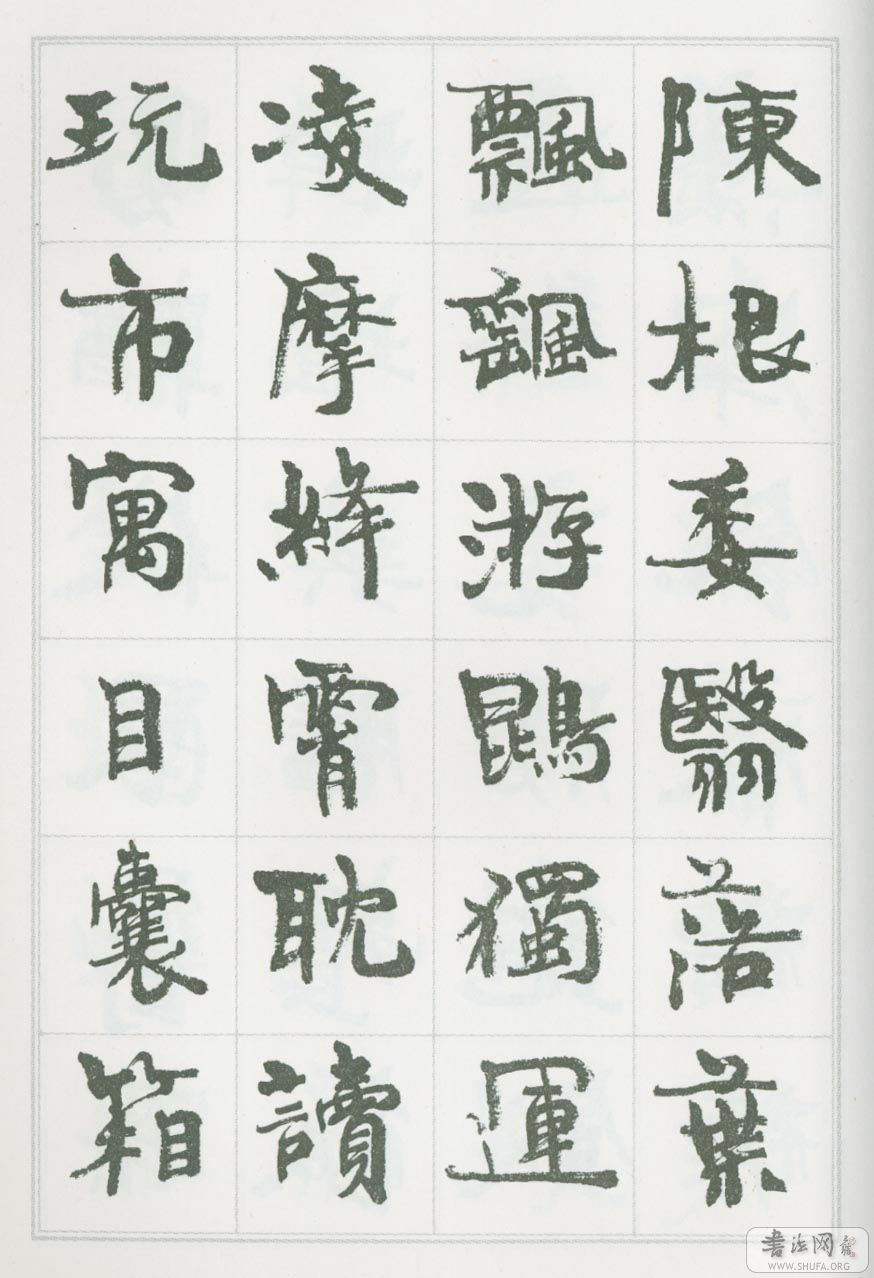 陳根委翳落葉
飄飖游鵾獨運
凌摩絳霄耽讀
玩市寓目囊箱
書法网
WWW.SHUFA.ORG